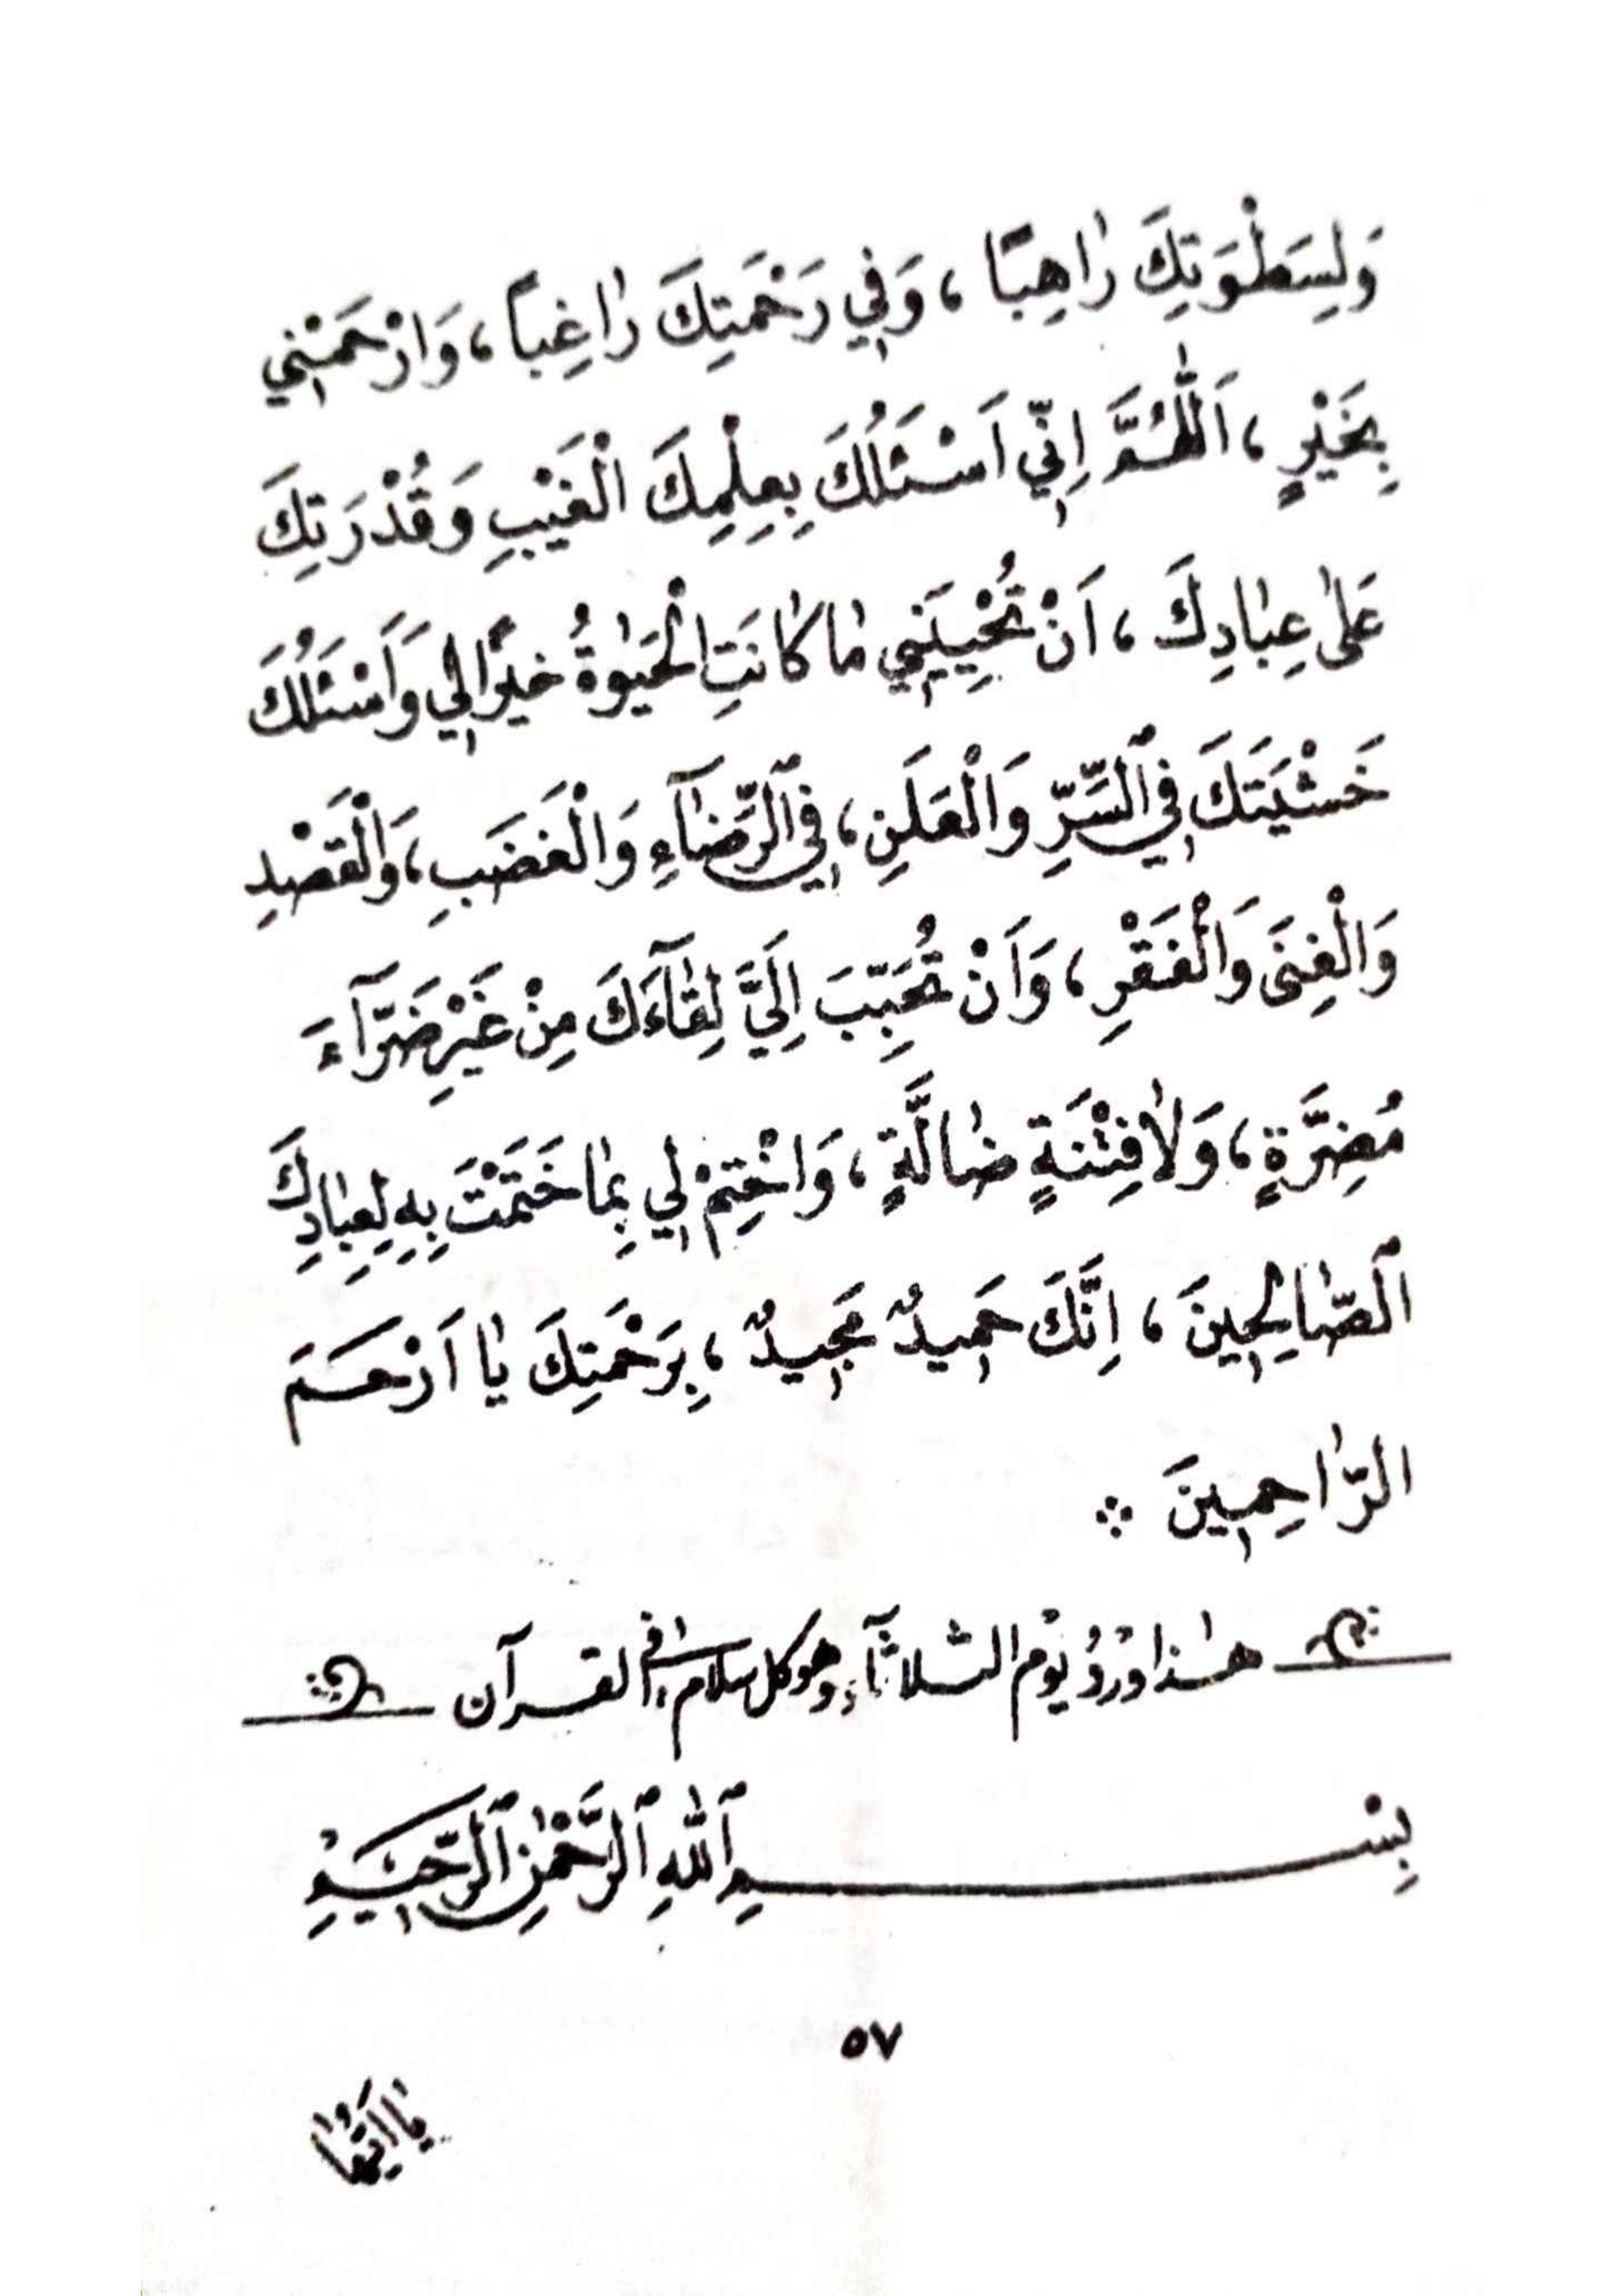 وَلِسَطْوَتِكَ رٰاهِبًا ، وَفِي رَحْمَتِكَ رٰاغِباً ، وَارْحَمْنِي
بِخَيْرٍ ، اَللّٰهُمَّ اِنِّي اَسْئَلُكَ بِعِلْمِكَ الْغَيْبِ وَقُدْرَتِكَ
عَلىٰ عِبٰادِكَ ، اَنْ تُحْيِيَنِي مٰا كٰانَتِ الْحَيٰوةُ خَيْرًا لِي وَاَسْئَلُكَ
خَشْيَتَكَ فِي ٱلسِّرِّ وَالْعَلَنِ ، فِي ٱلرِّضٰآءِ وَالْغَضَبِ ، وَالْقَصْدِ
وَالْغِنَى وَالْفَقْرِ ، وَاَنْ تُحَبِّبَ اِلَيَّ لِقٰآءَكَ مِنْ غَيْرِ ضَرَّآءَ
مُضِرَّةٍ ، وَلاٰ فِتْنَةٍ ضٰالَّةٍ ، وَاخْتِمْ لِي بِمٰا خَتَمْتَ بِهِ لِعِبٰادِكَ
ٱلصّٰالِحِينَ ، اِنَّكَ حَمِيدٌ مَجِيدٌ ، بِرَحْمَتِكَ يٰا اَرْحَمَ
الرّٰاحِمِينَ ∴
هٰذا وِرْدُ يَوْم الثلاثآء وهو كل سلام في القرآن
بِسْمِ ٱللّٰهِ ٱلرَّحْمٰنِ ٱلرَّحِيمِ
٥٧
يٰا اَيُّهَا